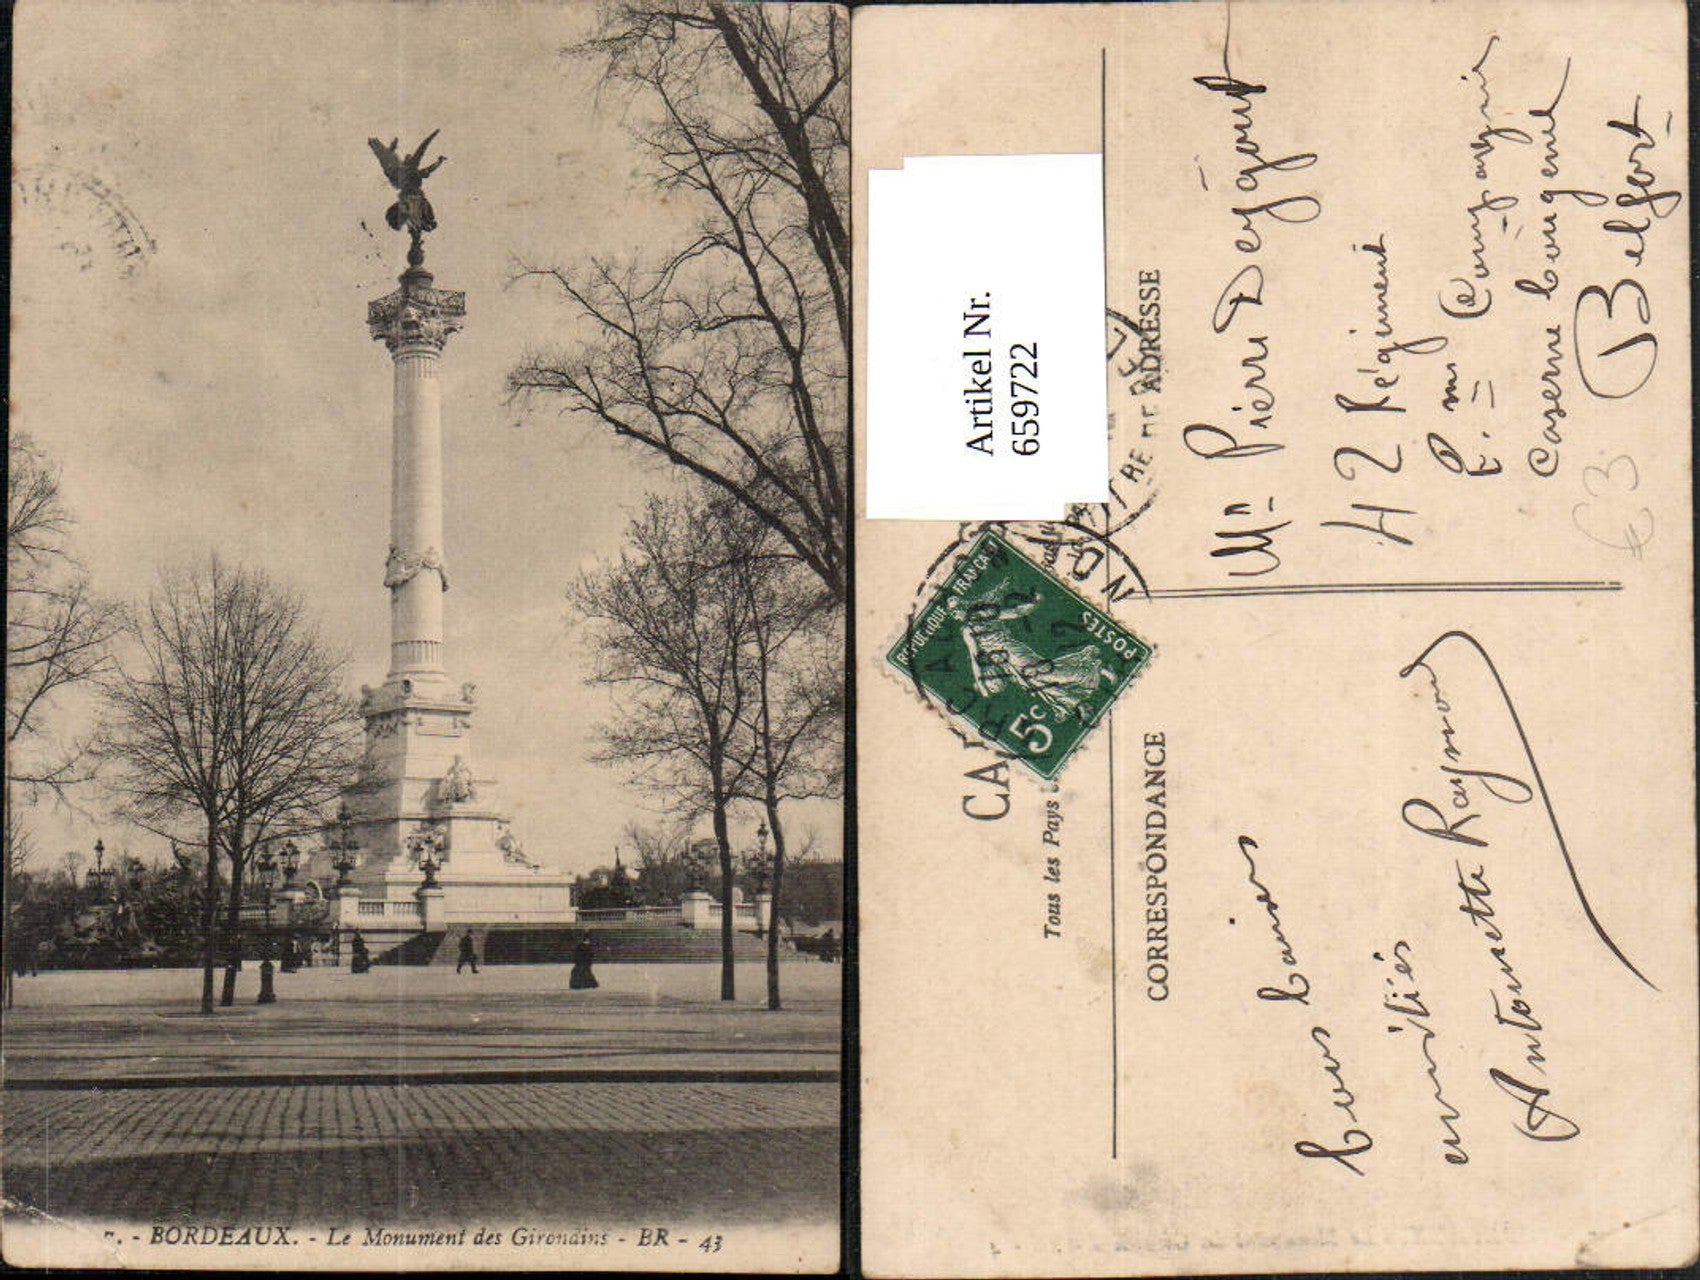 BORDEAUX. - Le Monument des Girondins - BR - 43
Artikel Nr.
6597722
RÉPUBLIQUE FRANÇAISE
POSTES
5c
CA
Tous les Pays
ADRESSE
CORRESPONDANCE
Mr Pierre Deygout
42 Régiment
Compagnie
Caserne Bougenel
Belfort
€3
bons baisers
amitiés
Antoinette Raymond